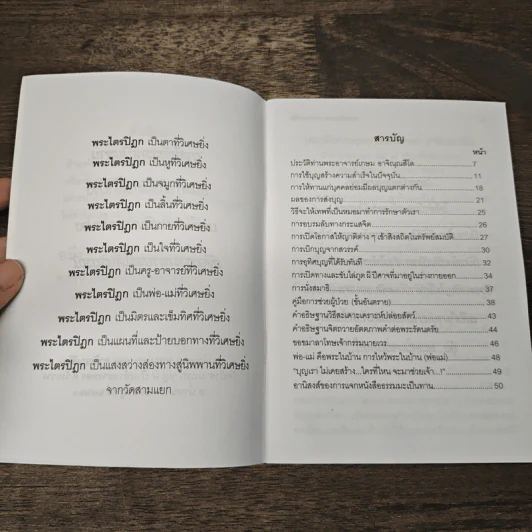 พระไตรปิฎก เป็นตาที่วิเศษยิ่ง
พระไตรปิฎก เป็นหูที่วิเศษยิ่ง
พระไตรปิฎก เป็นจมูกที่วิเศษยิ่ง
พระไตรปิฎก เป็นลิ้นที่วิเศษยิ่ง
พระไตรปิฎก เป็นกายที่วิเศษยิ่ง
พระไตรปิฎก เป็นใจที่วิเศษยิ่ง
พระไตรปิฎก เป็นครู-อาจารย์ที่วิเศษยิ่ง
พระไตรปิฎก เป็นพ่อ-แม่ที่วิเศษยิ่ง
พระไตรปิฎก เป็นมิตรและเข็มทิศที่วิเศษยิ่ง
พระไตรปิฎก เป็นแผนที่และป้ายบอกทางที่วิเศษยิ่ง
พระไตรปิฎก เป็นแสงสว่างส่องทางสู่นิพพานที่วิเศษยิ่ง
จากวัดสามแยก
สารบัญ
หน้า
ประวัติท่านพระอาจารย์เกษม อาจิณฺณสีโล 7
การใช้บุญสร้างความสำเร็จในปัจจุบัน 11
การให้ทานแก่บุคคลย่อมมีผลบุญแตกต่างกัน 18
ผลของการส่งบุญ 21
วิธีจะให้เทพที่เป็นหมอมาทำการรักษาตัวเรา 25
การอบรมลับทางกระแสจิต 26
การเปิดโอกาสให้ญาติต่าง ๆ เข้าสิงสถิตในทรัพย์สมบัติ 27
การเบิกบุญจากสวรรค์ 30
การอุทิศบุญที่ได้รับทันที 32
การเปิดทางและขับไล่ภูต ผี ปีศาจที่มาอยู่ในร่างกายออก 34
การนั่งสมาธิ 37
คู่มือการช่วยผู้ป่วย (ขั้นอันตราย) 38
คำอธิษฐานวิธีสะเดาะเคราะห์ปล่อยสัตว์ 43
คำอธิษฐานจิตถวายอัตตภาพคำต่อพระรัตนตรัย 44
ขอขมาลาโทษเจ้ากรรมนายเวร 46
พ่อ-แม่ คือพระในบ้าน การไหว้พระในบ้าน (พ่อแม่) 48
"บุญเรา ไม่เคยสร้าง...ใครที่ไหน จะมาช่วยเจ้า...!" 49
อานิสงส์ของการแจกหนังสือธรรมมะเป็นทาน 50